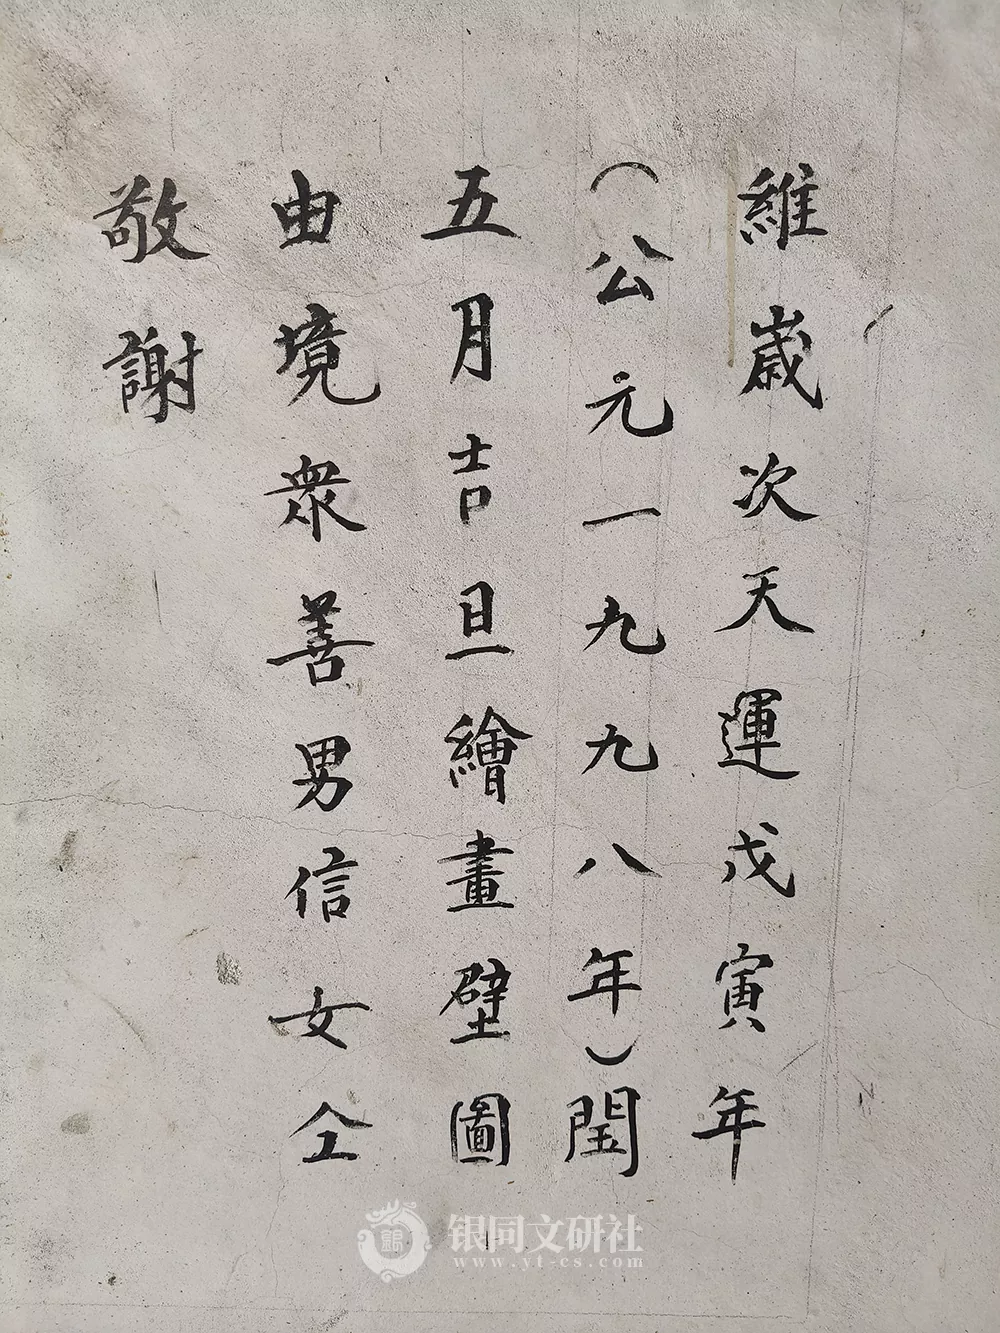 維歲次天運戊寅年
（公元一九九八年）閏
五月吉旦繪畫壁圖
由境衆善男信女仝
敬謝
银同文研社
www.yt-cs.com